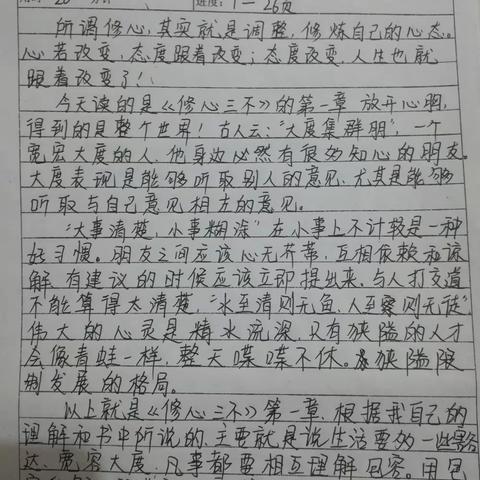 进度：1一26页
所谓修心，其实就是调整，修炼自己的心态。
心若改变，态度跟着改变；态度改变，人生也就
跟着改变了！
今天读的是《修心三不》的第一章 放开心胸，
得到的是整个世界！古人云：“大度集群朋”，一个
宽宏大度的人，他身边必然有很多知心的朋友。
大度表现是能够听取别人的意见，尤其是能够
听取与自己意见相左的意见。
“大事清楚，小事糊涂”在小事上不计较是一种
好习惯。朋友之间应该心无芥蒂，互相依赖和谅
解，有建议的时候应该立即提出来，与人打交道
不能算得太清楚，“水至清则无鱼，人至察则无徒”。
伟大的心灵是精水流深，只有狭隘的人才
会像青蛙一样，整天喋喋不休。狭隘限
制发展的格局。
以上就是《修心三不》第一章，根据我自己的
理解和书中所说的，主要就是说生活要多一些豁
达，宽容大度，凡事都要相互理解 包容。用包